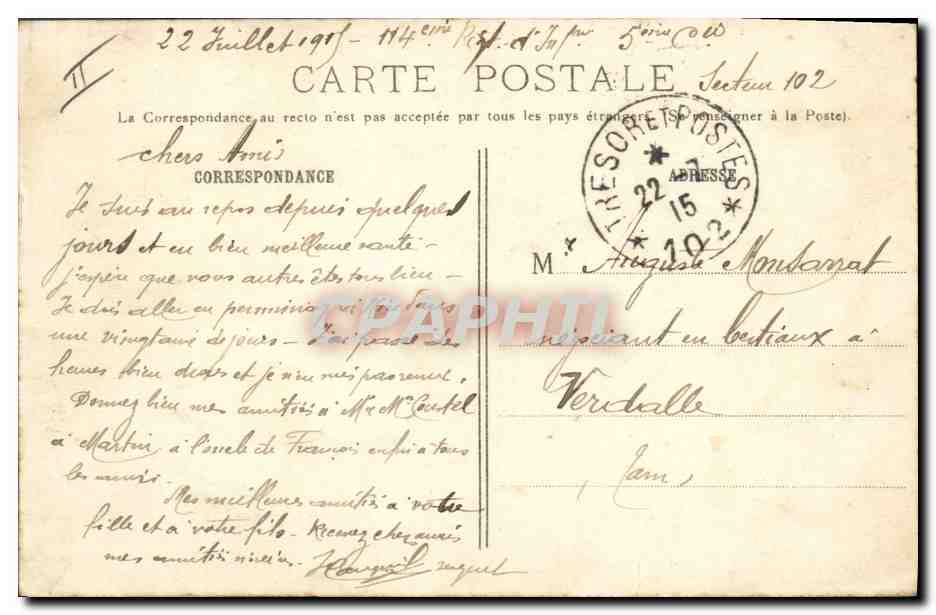 II
22 Juillet 1915 - 114eme Regt d'Infrie 5eme Cie
CARTE POSTALE
Secteur 102
La Correspondance au recto n'est pas acceptée par tous les pays étrangers (Se renseigner à la Poste).
chers Amis
CORRESPONDANCE
Je suis au repos depuis quelques
jours et en bien meilleure santé -
j'espère que vous autres êtes tous bien -
Je dois aller en permission ici dans
une vingtaine de jours - J'ai passé des
heures bien dures et je n'en suis pas remis.
Donnez bien mes amitiés à Mr Me Coutel
à Martin à l'oncle de François enfin à tous
les amis.
Mes meilleures amitiés à votre
fille et à votre fils - Recevez chers amis
mes amitiés
sergent
TRESOR ET POSTES
22 - 7
15
* 102 *
ADRESSE
M. Auguste Monsarrat
négociant en bestiaux à
Verdalle
Tarn
CPAPHIL